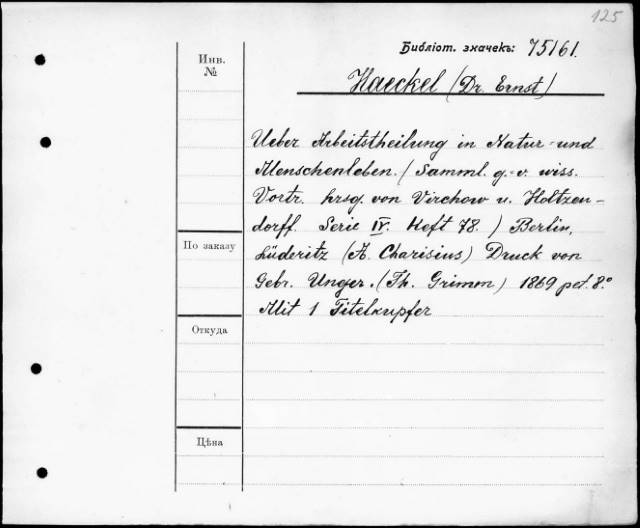 125
Библіот. значекъ: 75161.
Инв.
№
Haeckel (Dr. Ernst)
Ueber Arbeitstheilung in Natur- und
Menschenleben. (Samml. g.-v. wiss.
Vortr. hrsg. von Virchow u. Holtzen-
dorff. Serie IV. Heft 78.) Berlin,
По заказу
Lüderitz (A. Charisius) Druck von
Gebr. Unger. (Th. Grimm) 1869 pet. 8.°
Mit 1 Titelkupfer
Откуда
Цѣна